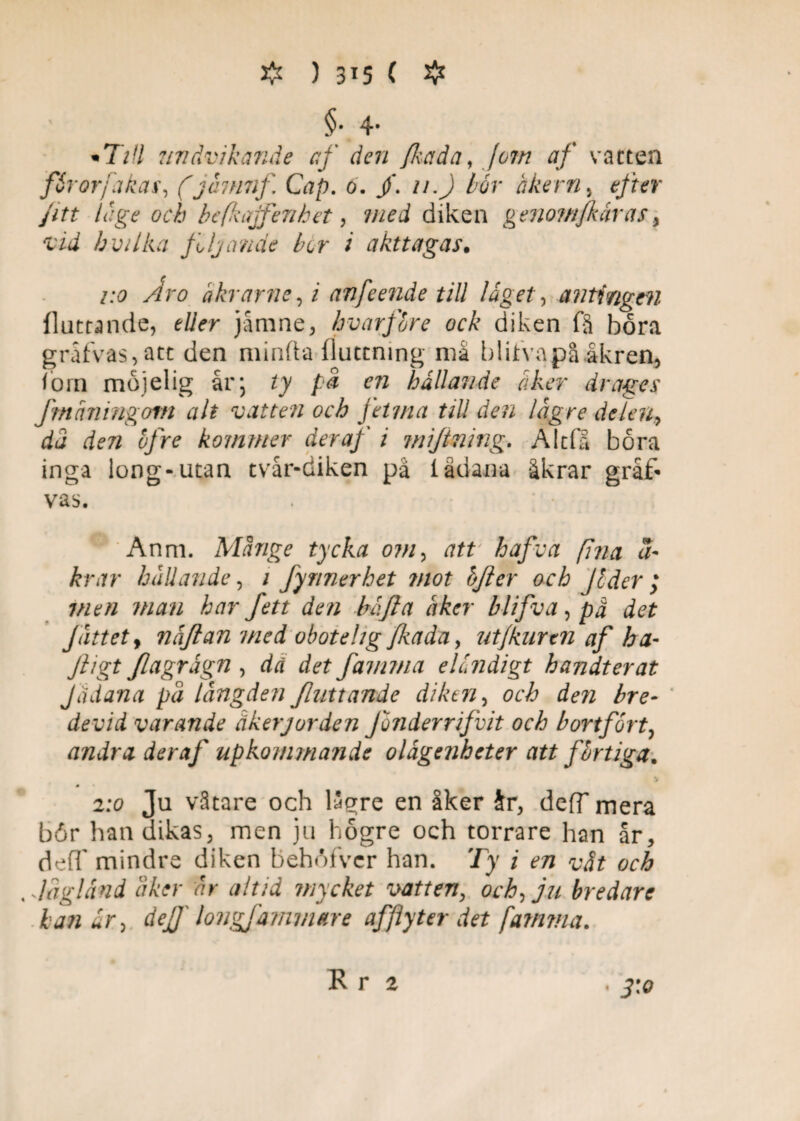 ☼ ) 315 ( ☼
§. 4.
Till undvikande af den ſkada, ſom af vatten
förorſakas, (jämnf. Cap. 6. §. 11.) bör åkern, efter
ſitt läge och beſkaffenhet, med diken genomſkäras,
vid hvilka följande bör i akttagas.
1:o Äro åkrarne, i anſeende till läget, antingen
ſluttande, eller jämne, hvarföre ock diken få böra
gräfvas, att den minſta ſluttning må blifva på åkren,
ſom möjelig är; ty på en hållande åker drages
ſmåningom alt vatten och fetma till den lägre delen,
då den öfre kommer deraf i miſtning. Altſå böra
inga long- utan tvär-diken på ſådana åkrar gräf-
vas.
Anm. Månge tycka om, att hafva ſina å-
krar hållande, i ſynnerhet mot öſter och ſöder;
men man har ſett den bäſta åker blifva, på det
ſättet, näſtan med obotelig ſkada, utſkuren af ha-
ſtigt ſlagrägn, då det ſamma eländigt handterat
ſådana på längden ſluttande diken, och den bre-
devid varande åkerjorden ſönderrifvit och bortfört,
andra deraf upkommande olägenheter att förtiga.
2:o Ju våtare och lägre en åker är, deſſ mera
bör han dikas, men ju högre och torrare han är,
deſſ mindre diken behöfver han. Ty i en våt och
lågländ åker är altid mycket vatten, och, ju bredare
han är, deſſ longſammare afflyter det ſamma.
R r 2
3:o